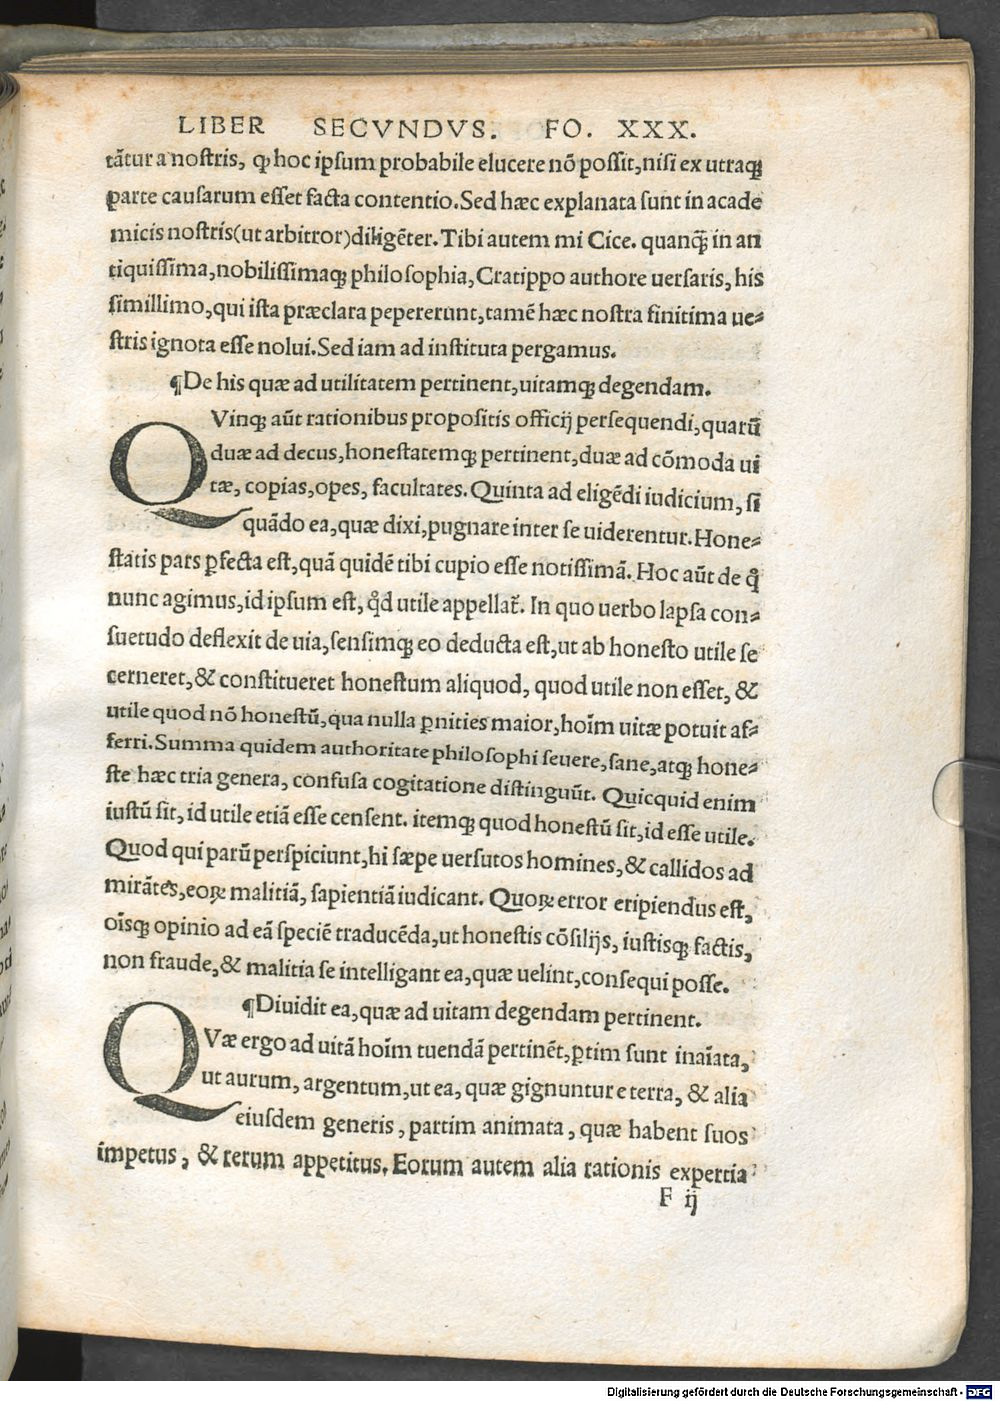 LIBER SECVNDVS. FO. XXX.
tãtur a nostris, ꝙ hoc ipsum probabile elucere nõ possit, nisi ex utraqꝫ
parte causarum esset facta contentio. Sed hæc explanata sunt in acade
micis nostris (ut arbitror) diligẽter. Tibi autem mi Cice. quanqꝫ̃ in an
tiquissima, nobilissimaqꝫ philosophia, Cratippo authore uersaris, his
simillimo, qui ista præclara pepererunt, tamẽ hæc nostra finitima ue⸗
stris ignota esse nolui. Sed iam ad instituta pergamus.
¶De his quæ ad utilitatem pertinent, uitamqꝫ degendam.
QVinqꝫ aũt rationibus propositis officij persequendi, quarũ
duæ ad decus, honestatemqꝫ pertinent, duæ ad cõmoda ui
tæ, copias, opes, facultates. Quinta ad eligẽdi iudicium, si
quãdo ea, quæ dixi, pugnare inter se uiderentur. Hone⸗
statis pars ꝑfecta est, quã quidẽ tibi cupio esse notissimã. Hoc aũt de q̊
nunc agimus, id ipsum est, qd̓ utile appellat᷑. In quo uerbo lapsa con⸗
suetudo deflexit de uia, sensimqꝫ eo deducta est, ut ab honesto utile se
cerneret, & constitueret honestum aliquod, quod utile non esset, &
utile quod nõ honestũ, qua nulla ꝑnities maior, hoĩm uitæ potuit af⸗
ferri. Summa quidem authoritate philosophi seuere, sane, atqꝫ hone⸗
ste hæc tria genera, confusa cogitatione distinguũt. Quicquid enim
iustũ sit, id utile etiã esse censent. itemqꝫ quod honestũ sit, id esse utile.
Quod qui parũ perspiciunt, hi sæpe uersutos homines, & callidos ad
mirãtes, eoꝝ malitiã, sapientiã iudicant. Quoꝝ error eripiendus est,
oĩsqꝫ opinio ad eã speciẽ traducẽda, ut honestis cõsilijs, iustisqꝫ factis,
non fraude, & malitia se intelligant ea, quæ uelint, consequi posse.
¶Diuidit ea, quæ ad uitam degendam pertinent.
QVæ ergo ad uitã hoĩm tuendã pertinẽt, ꝑtim sunt inaĩata,
ut aurum, argentum, ut ea, quæ gignuntur e terra, & alia
eiusdem generis, partim animata, quæ habent suos
impetus, & rerum appetitus. Eorum autem alia rationis expertia
F ij
Digitalisierung gefördert durch die Deutsche Forschungsgemeinschaft - DFG